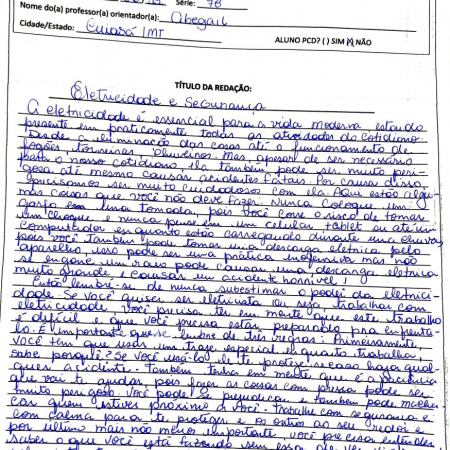 Série: 7B
Nome do(a) professor(a) orientador(a): Abegail
Cidade/Estado: Cuiabá IMT
ALUNO PCD? ( ) SIM (X) NÃO
TÍTULO DA REDAÇÃO:
Eletricidade e Segurança
A eletricidade é essencial para a vida moderna estando
presente em praticamente todas as atividades do cotidiano
Desde a iluminação das casas até o funcionamento de
fogões, torneiras, chuveiros. Mas, apesar de ser necessário
para o nosso cotidiano, ela também pode ser muito peri-
gosa até mesmo causar acidentes fatais. Por causa disso,
precisamos ser muito cuidadosos com ela. Aqui estão algu-
mas coisas que você não deve fazer: Nunca coloque um
garfo em uma tomada, pois você corre o risco de tomar
um choque e nunca use um celular tablet ou até um
computador enquanto estão carregando durante uma chuva,
pois você também pode tomar uma descarga elétrica pelo
aparelho, isso pode ser uma prática inofensiva mas não
se engane um raio pode causar uma descarga elétrica
muito grande e causar um acidente horrível!
Então lembre-se de nunca subestimar o poder da eletrici-
dade. Se você quiser ser eletricista ou seja trabalhar com
eletricidade, você precisa ter em mente que este trabalho
é difícil e que você precisa estar preparado pra enfrenta-
lo. É importante que se lembre de três regras: Primeiramente,
você tem que usar um traje especial enquanto trabalha,
sabe porquê? Se você usá-lo ele te protege se caso haja qual-
quer acidente. Também tenha em mente que é a paciência
que vai te ajudar, pois fazer as coisas com pressa pode ser
muito perigoso. Você pode se prejudicar e também pode machu-
car quem estiver próximo a você. trabalhe com segurança e
com calma para te proteger e os outros ao seu redor e
por último mais não menos importante, você precisa entender
saber o que você está fazendo sem essa